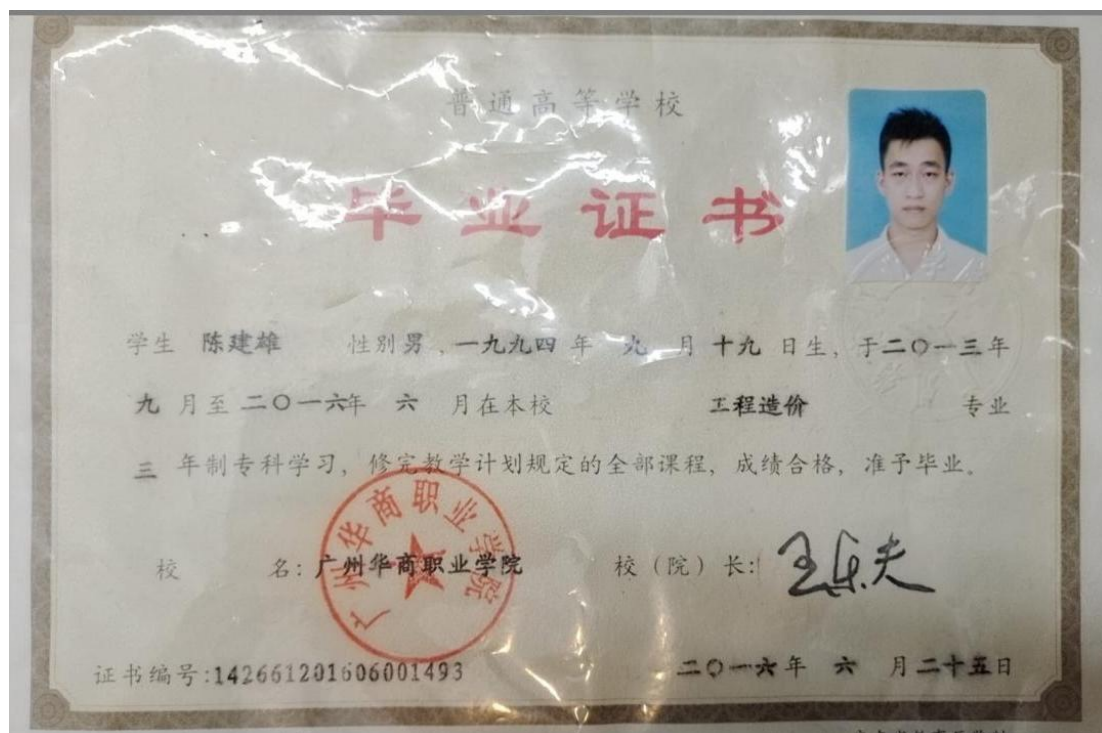 普通高等学校
毕业证书
学生 陈建雄 性别男，一九九四年 九 月十九日生，于二〇一三年
九月至二〇一六年 六 月在本校 工程造价 专业
三年制专科学习，修完教学计划规定的全部课程，成绩合格，准予毕业。
广州华商职业学院
校 名：广州华商职业学院 校（院）长：王乐夫
证书编号:142661201606001493 二〇一六年 六 月二十五日